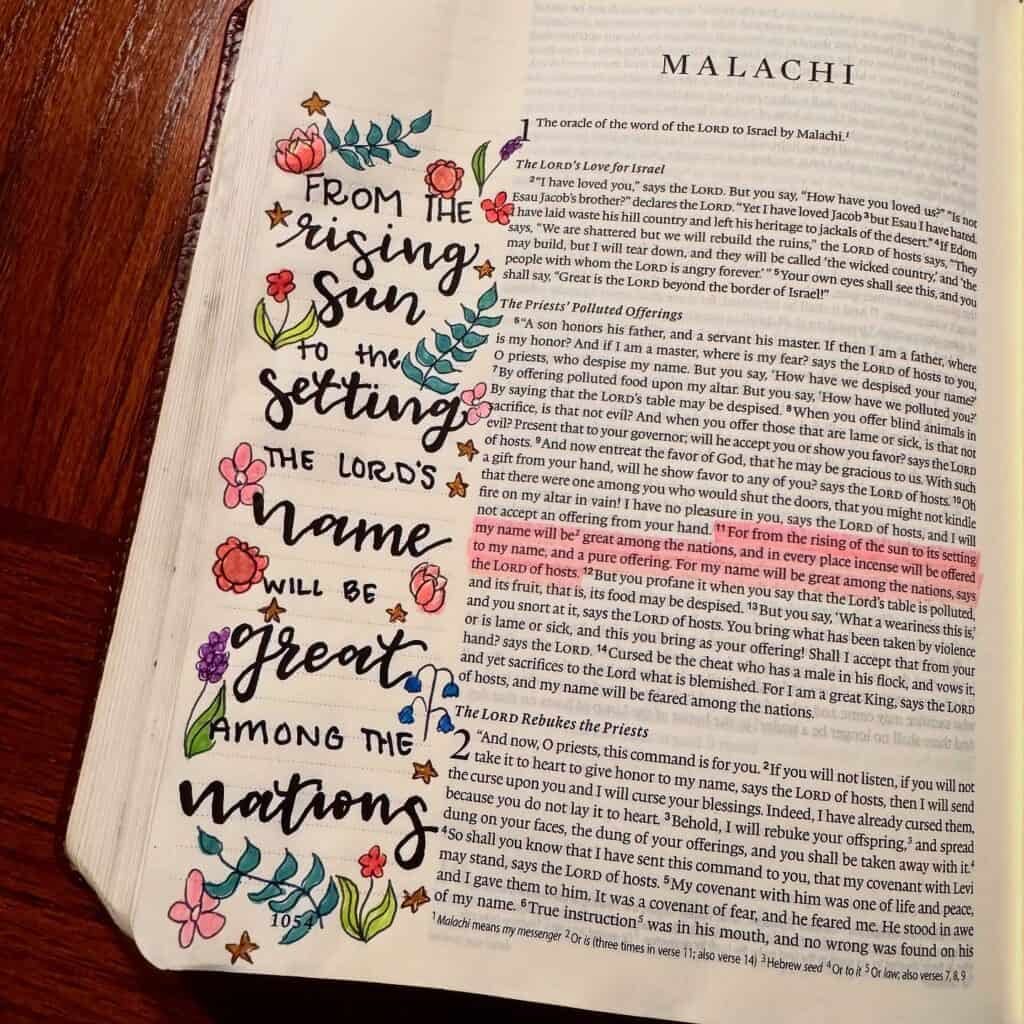 FROM THE
rising
sun
to the
setting
THE LORD'S
name
WILL BE
great
AMONG THE
nations
1054
MALACHI
1 The oracle of the word of the LORD to Israel by Malachi.¹
The LORD's Love for Israel
²"I have loved you," says the LORD. But you say, "How have you loved us?" "Is not
Esau Jacob's brother?" declares the LORD. "Yet I have loved Jacob ³but Esau I have hated.
I have laid waste his hill country and left his heritage to jackals of the desert." ⁴If Edom
says, "We are shattered but we will rebuild the ruins," the LORD of hosts says, "They
may build, but I will tear down, and they will be called 'the wicked country,' and 'the
people with whom the LORD is angry forever.'" ⁵Your own eyes shall see this, and you
shall say, "Great is the LORD beyond the border of Israel!"
The Priests' Polluted Offerings
⁶"A son honors his father, and a servant his master. If then I am a father, where
is my honor? And if I am a master, where is my fear? says the LORD of hosts to you,
O priests, who despise my name. But you say, 'How have we despised your name?'
⁷By offering polluted food upon my altar. But you say, 'How have we polluted you?'
By saying that the LORD's table may be despised. ⁸When you offer blind animals in
sacrifice, is that not evil? And when you offer those that are lame or sick, is that not
evil? Present that to your governor; will he accept you or show you favor? says the LORD
of hosts. ⁹And now entreat the favor of God, that he may be gracious to us. With such
a gift from your hand, will he show favor to any of you? says the LORD of hosts. ¹⁰Oh
that there were one among you who would shut the doors, that you might not kindle
fire on my altar in vain! I have no pleasure in you, says the LORD of hosts, and I will
not accept an offering from your hand. ¹¹For from the rising of the sun to its setting
my name will be² great among the nations, and in every place incense will be offered
to my name, and a pure offering. For my name will be great among the nations, says
the LORD of hosts. ¹²But you profane it when you say that the Lord's table is polluted,
and its fruit, that is, its food may be despised. ¹³But you say, 'What a weariness this is,'
and you snort at it, says the LORD of hosts. You bring what has been taken by violence
or is lame or sick, and this you bring as your offering! Shall I accept that from your
hand? says the LORD. ¹⁴Cursed be the cheat who has a male in his flock, and vows it,
and yet sacrifices to the Lord what is blemished. For I am a great King, says the LORD
of hosts, and my name will be feared among the nations.
The LORD Rebukes the Priests
2 "And now, O priests, this command is for you. ²If you will not listen, if you will not
take it to heart to give honor to my name, says the LORD of hosts, then I will send
the curse upon you and I will curse your blessings. Indeed, I have already cursed them,
because you do not lay it to heart. ³Behold, I will rebuke your offspring,³ and spread
dung on your faces, the dung of your offerings, and you shall be taken away with it.⁴
⁴So shall you know that I have sent this command to you, that my covenant with Levi
may stand, says the LORD of hosts. ⁵My covenant with him was one of life and peace,
and I gave them to him. It was a covenant of fear, and he feared me. He stood in awe
of my name. ⁶True instruction⁵ was in his mouth, and no wrong was found on his
¹Malachi means my messenger ²Or is (three times in verse 11; also verse 14) ³Hebrew seed ⁴Or to it ⁵Or law; also verses 7, 8, 9